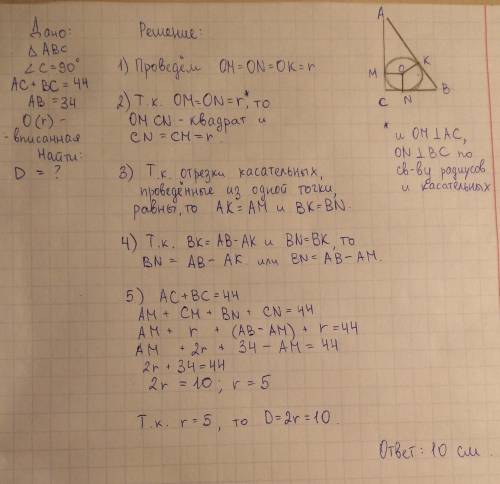 Дано:
△ ABC
∠C=90°
AC+BC=44
AB=34
O(r) –
- вписанная
Найти:
D = ?
Решение:
1) Проведём OM=ON=OK=r
2) Т.к. OM=ON=r,* то
OMCN - квадрат и
CN=CM=r.
3) Т.к. отрезки касательных,
проведённые из одной точки,
равны, то AK=AM и BK=BN.
4) Т.к. BK=AB-AK и BN=BK, то
BN = AB-AK или BN=AB-AM.
5) AC+BC=44
AM+CM+BN+CN=44
AM+ r + (AB-AM)+ r=44
AM +2r + 34-AM=44
2r+34=44
2r =10; r=5
Т.к. r=5, то D=2r=10.
Ответ: 10 см.
A
M
O
K
C
N
B
*
и OM⊥AC,
ON⊥BC по
св-ву радиусов
и касательных